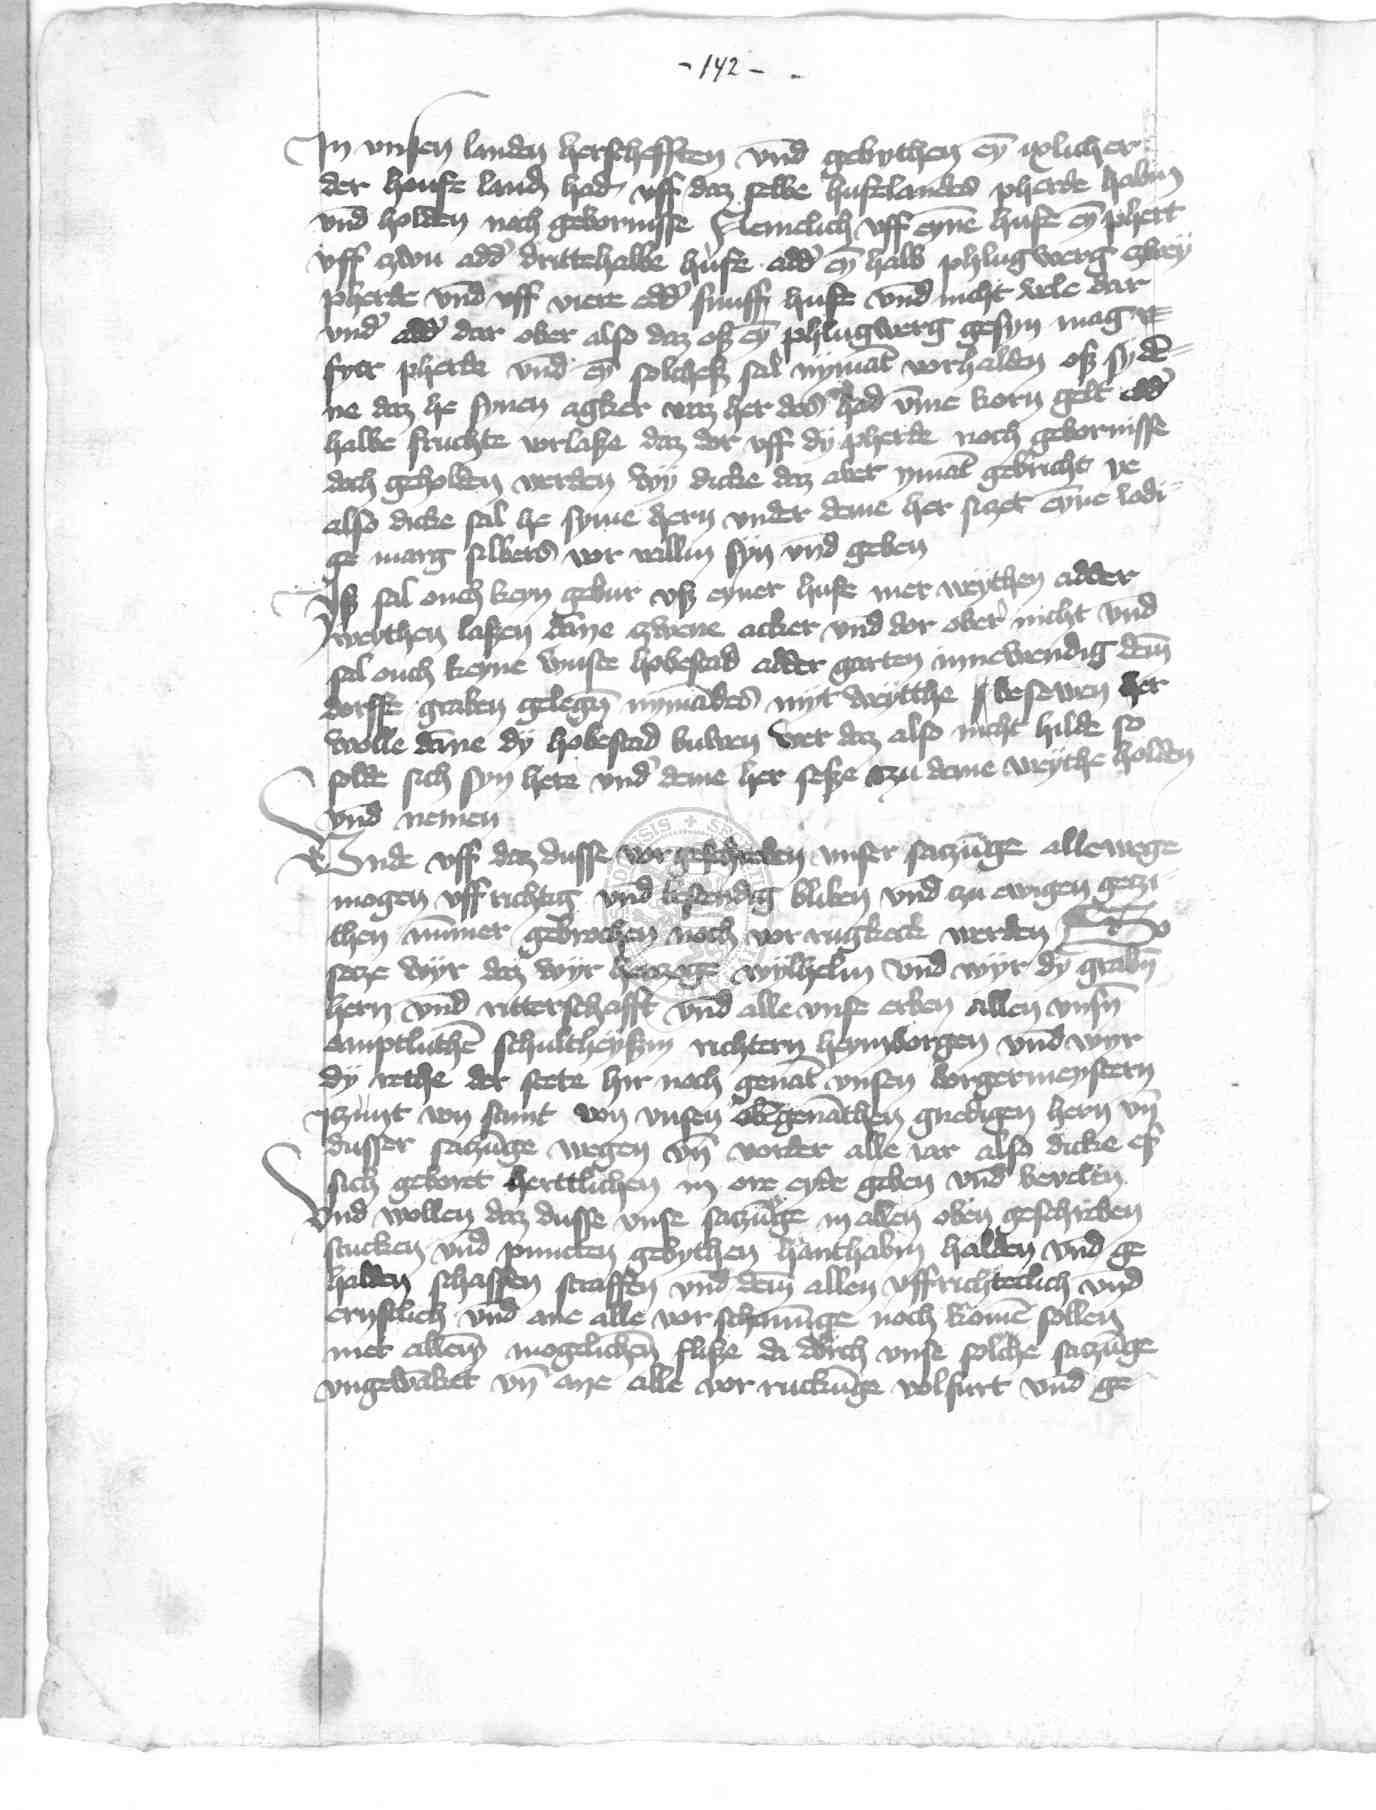 - 142 -
In unsen landen herschefften vnd gebythen eȳ iczlicher
der houfe landz had uff daz selbe hufelandes pherde habin
vnd holden noch gebornisse Nemelich uff eyne hufe eȳ phert
uff zwu add' drittehalbe hufe add' eȳ halb phlugwerg zwey
pherde vnd uff viere add' funff hufe vnd nicht vele dar
vnd' add' dar ober also daz eß eȳ phlugwerg gesyn mag
fyer pherde vnd eȳ solchess sal nymāt vorhalden eß sy dē
ne daz he synen agker waz her des had vme korn gelt add'
halbe fruchte vorlaße daz dor uff dy pherde noch gebornisse
doch geholden werden wy dicke daz aber ymāt gebricht ye
also dicke sal he syme hern vnder deme her siczet eyne lodi
ge marg silbers vor vallin syn vnd geben
Iß sal ouch keyn gebur uß eyner hufe mer weythen adder
weythen laßen dāne zwene acker vnd dor ober nicht vnd
sal ouch keyne wuste hobestad adder garten innewendig dem
dorffe graben gelegin nymādes myt weytthe beseWen her
wolle dāne dy hobestad buwen wer daz also nicht hilde so
solde sich syn here vnd' deme her seße czu deme weythe holden
vnd nemen
Vnde uff daz dusse vorgeschreben vnser saczūnge allewege
mogen uffrichtig vnd bestendig bliben vnd zu ewigen geczi
then nūmer gebrochen noch vorrugkeck werden So
secze wyr daz wyr herczoge wylhelm vnd wyr dy grabin
hern vnd ritterschafft vnd alle vnse erben allen vnsin
amptluthē schultheyßin richtern heymborgen vnd wyr
dy rethe der stete hir noch genāt vnsen borgermeystern
iczunt von stunt von vnsen obēgenāthen gnedigen hern vn̄
dusser saczūge wegen vn̄ vorder alle iar also dicke eß
sich geboret herttlichen in ore eyde geben vnd bevelen
Vnd wollen daz dusse vnse saczūge in allen oben geschreben
stucken vnd puncten gebythen hanthabin halden vnd ge
halden schaffen straffen vnd dem allen uffrichteclich vnd
ernstlich vnd ane alle vorschonūnge noch komē sollen
met allem mogelichen fliße da dorch vnse solche saczūge
vngewāket vn̄ ane alle vorruckūge volfurt vnd ge